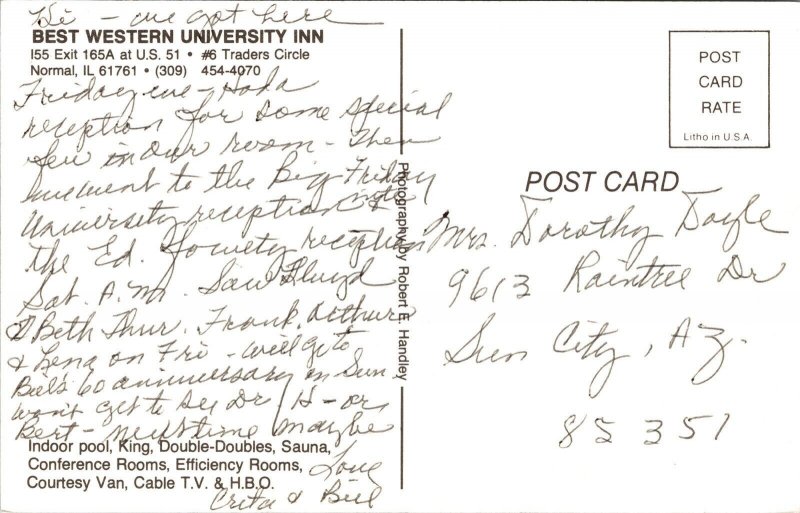 Hi - we got here
BEST WESTERN UNIVERSITY INN
I55 Exit 165A at U.S. 51 • #6 Traders Circle
Normal, IL 61761 • (309) 454-4070
Friday eve - Had a
reception for some special
few in our room - Then
we went to the Big Friday
University reception nite &
the Ed. Society reception
Sat. A.M. Saw Floyd
& Beth Thur. Frank, Arthurs
& Lena on Fri - will go to
Bill's 60 anniversary on Sun
won't get to see Dr H - or
Bert - next time maybe
Indoor pool, King, Double-Doubles, Sauna,
Conference Rooms, Efficiency Rooms,
Courtesy Van, Cable T.V. & H.B.O.
Love
Creta & Bill
Photography by Robert E. Handley
POST
CARD
RATE
Litho in U.S.A.
POST CARD
Mrs. Dorothy Doyle
9613 Raintree Dr
Sun City, AZ.
85351